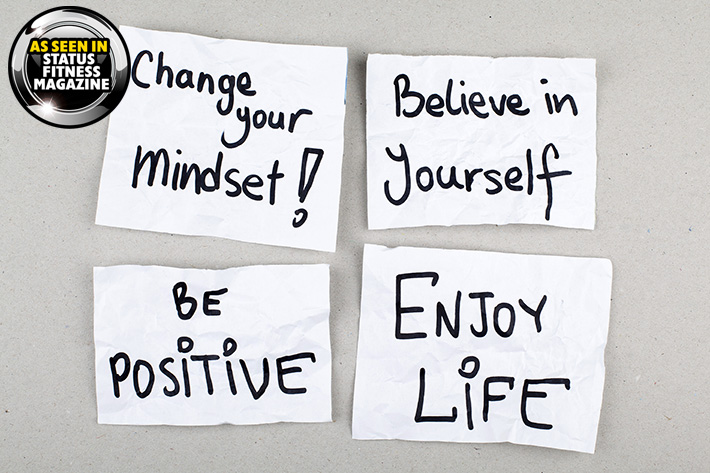 AS SEEN IN
STATUS
FITNESS
MAGAZINE
Change
your
Mindset!
Believe in
yourself
BE
POSITIVE
ENJOY
LIFE